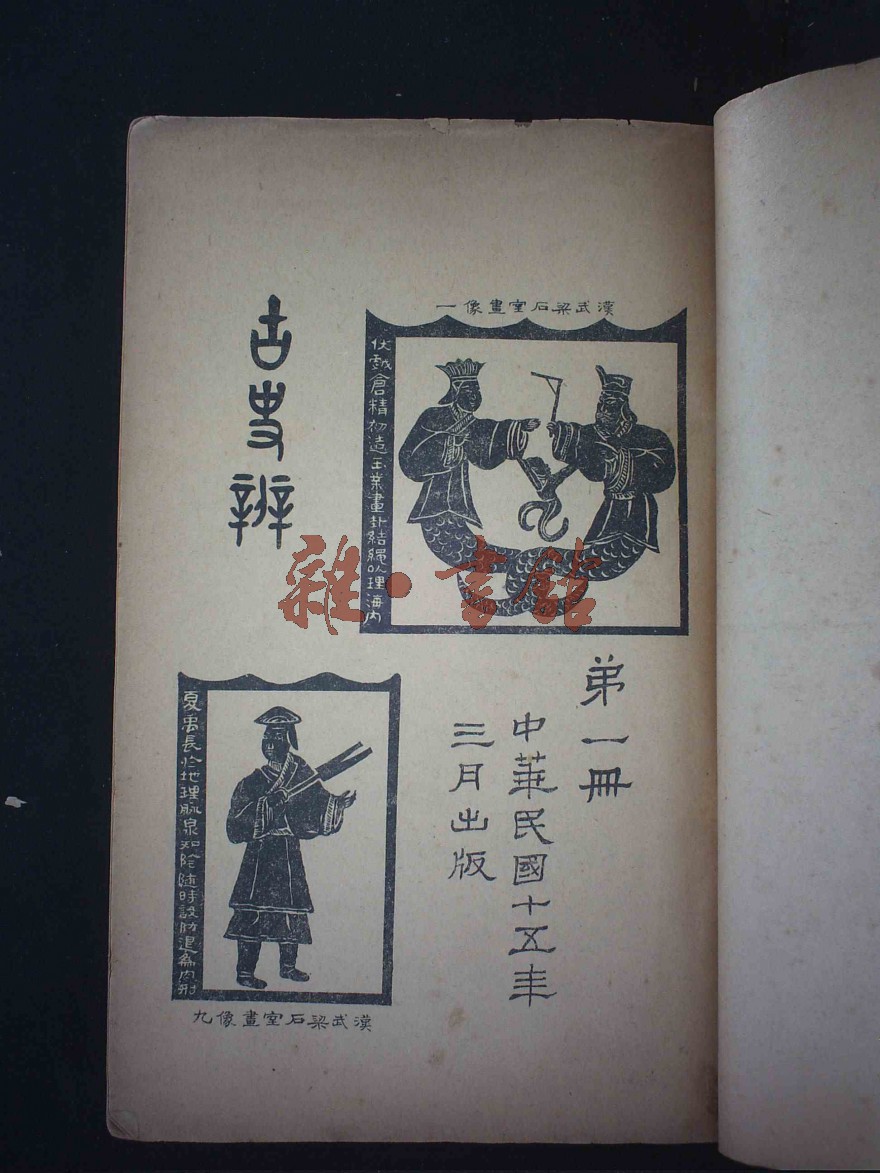 古史辨
漢武梁石室畫像一
伏戲倉精初造王業畫卦結繩以理海內
第一冊
中華民國十五年
三月出版
夏禹長於地理脉泉知陰隨時設防退為肉刑
漢武梁石室畫像九
雜·書館